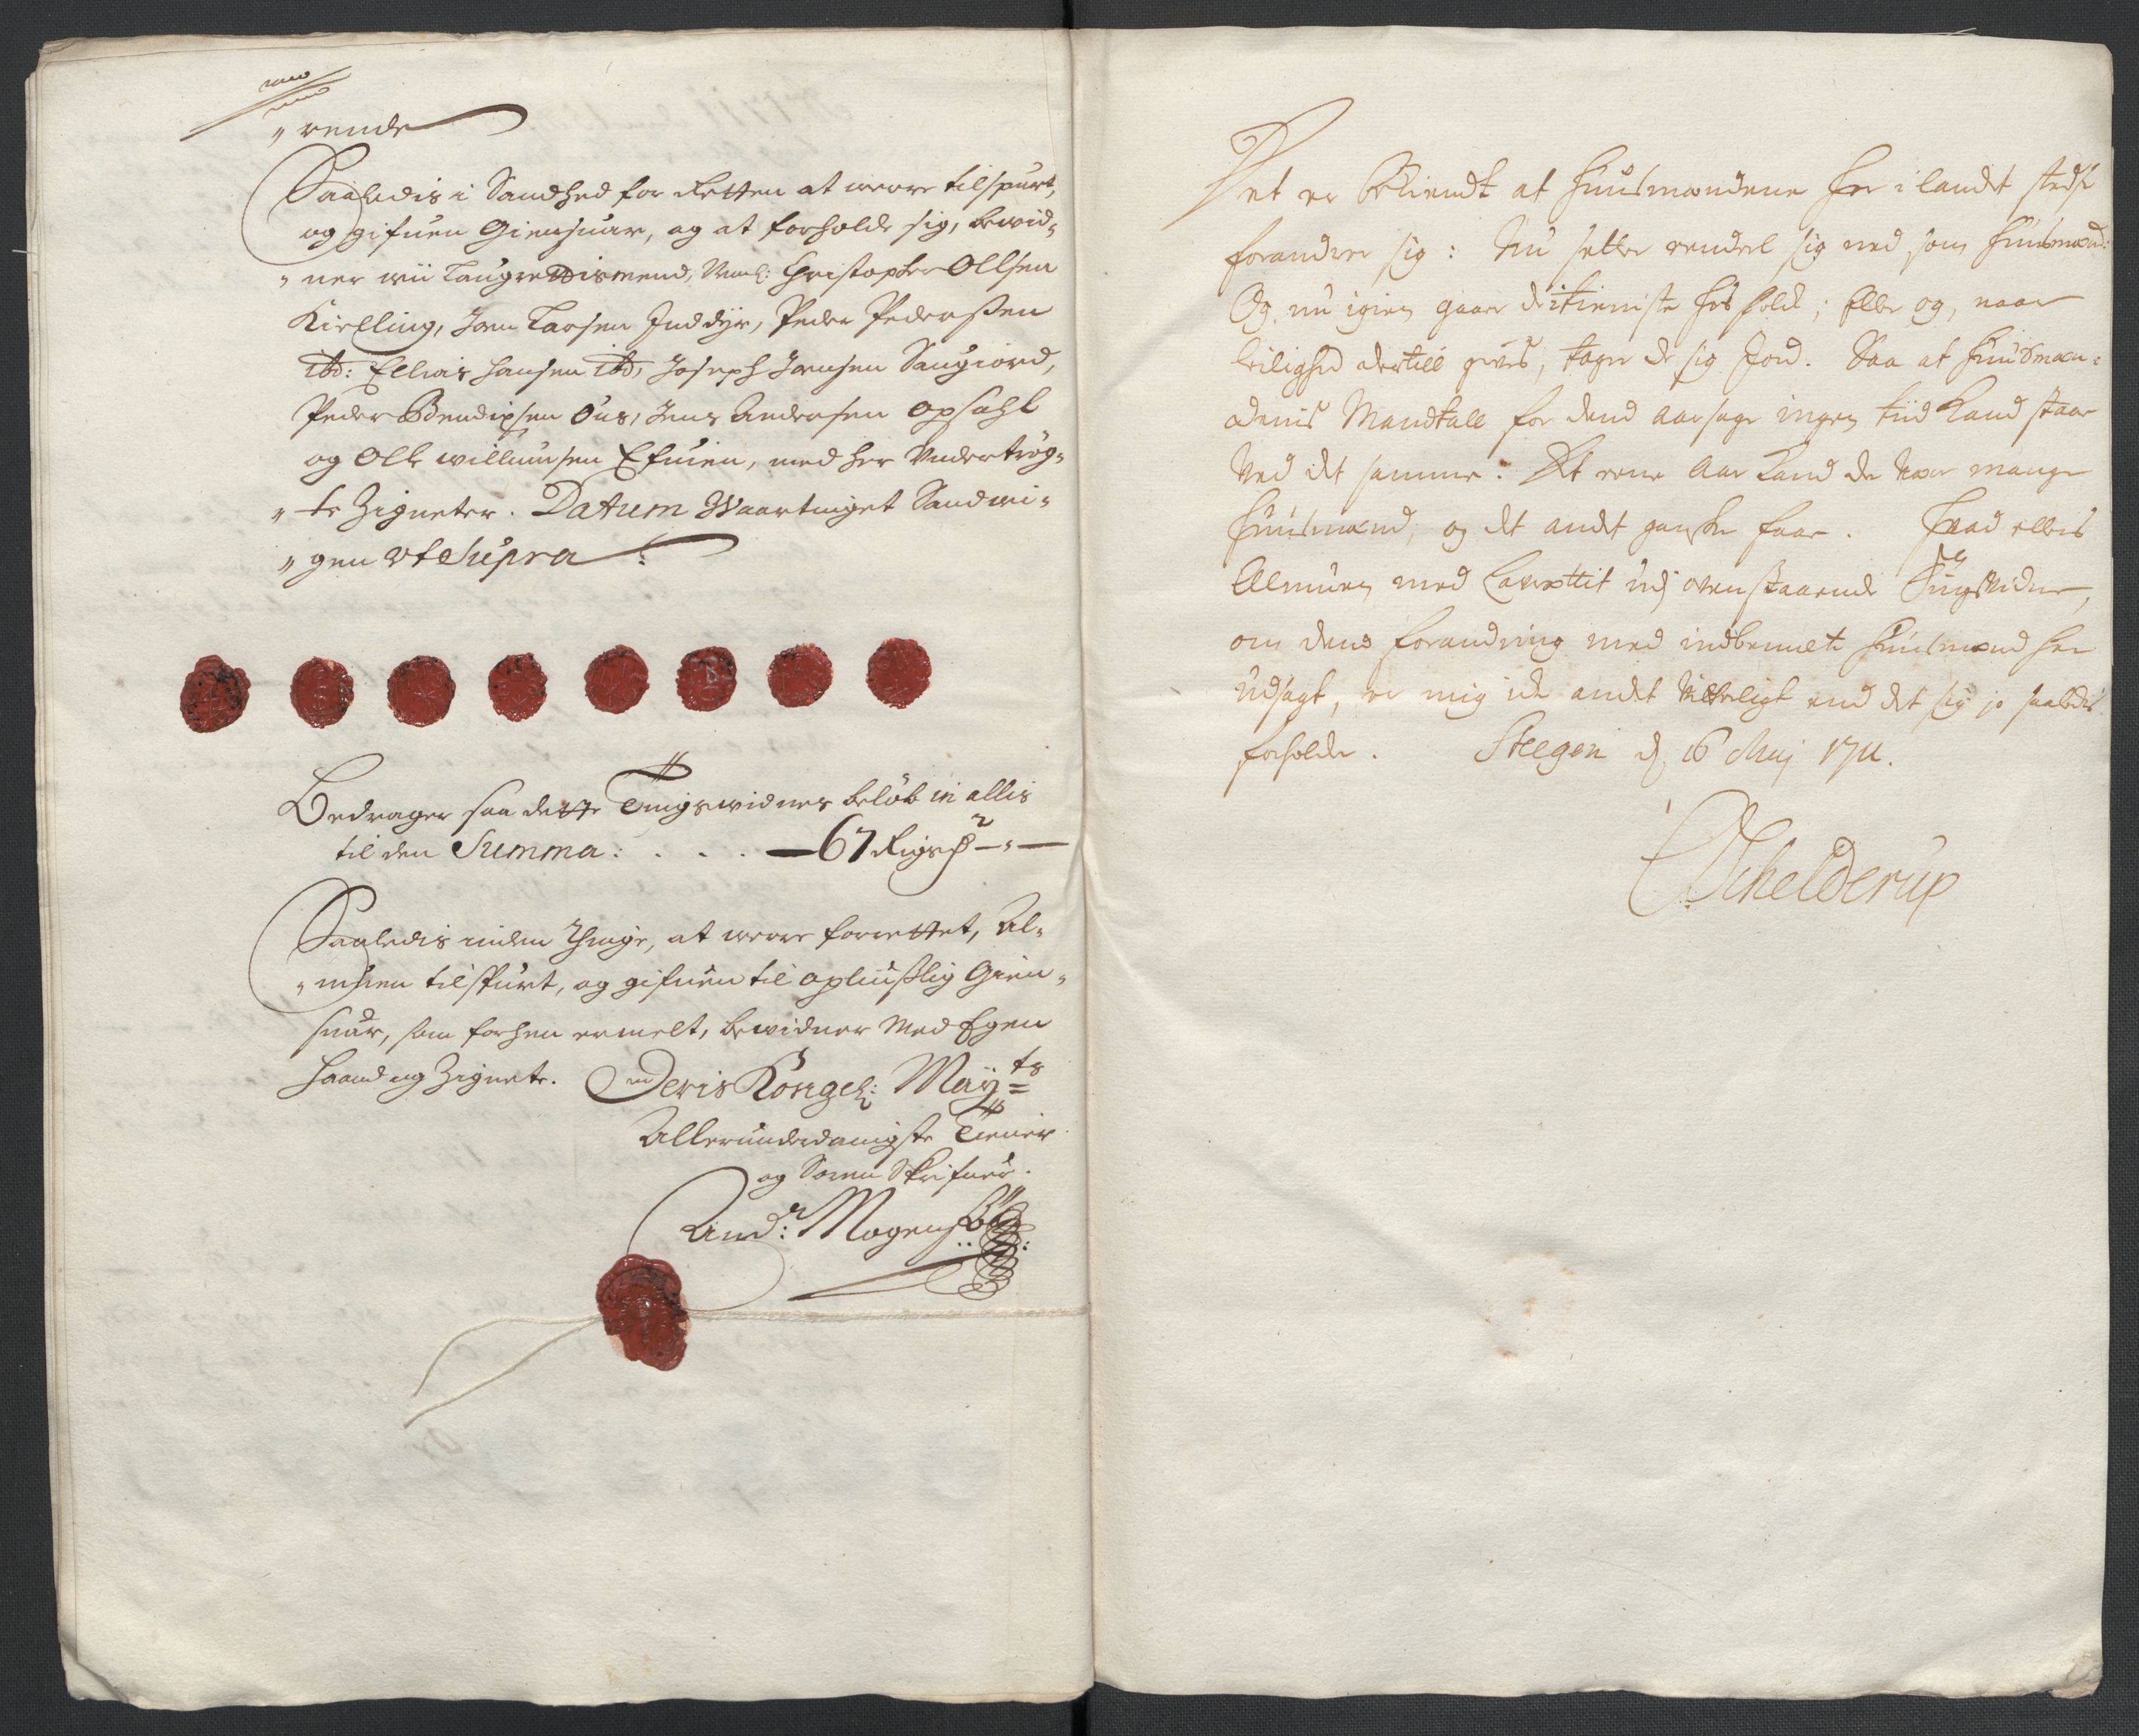 „rende
Saaledis i Sandhed for Retten at were tilspurt,
og gifuen Giensuar, og at forholde sig, bewid-
„ner wii Laugrettismend, Nafl: Christopher Ollsen
Kielling, Jon Larsen Inddyr, Peder Pedersen
ibd: Ellias Hansen ibd, Joseph Jensen Saugiord,
Peder Bendixsen Øus, Jens Andersen Opsahl
og Olle Willumsen Efuien, med her Undertrøg-
„te Zigneter. Datum Waartinget Sandwi-
„gen Ut Supra
Bedrager saa dette Tingswidnes beløb in allis
til den Summa: . . . . — 67 Rigsdr — " —
Saaledis inden Tinge, at were forrettet, Al-
„muen tilspurt, og gifuen til opliuslig Gien-
suar, som forhen ermelt, bewidner Med Egen
Haand og Zignete. Deris Kongel: Mayts
Allerunderdanigste Tiener
og Soren Skrifuer.
And: Mogens
Det er bekiendt at Huusmændene her i landet stedse
forandrer sig: Nu setter en deel sig ned som Huusmænd:
Og nu igien gaar de i tieniste hos folk; Eller og, naar
leilighed dertill gives, tager de sig Jord. Saa at Huusmæn-
denis Mandtall for dend aarsage ingen tiid kand staae
Ved det samme: Et eene Aar kand de være mange
Huusmænd, og det andet ganske faae. Hvad ellers
Almuen med Lavrettet udj ovenstaaende Tingsvidne,
om dend forandring med indbemelte Huusmænd har
udsagt, er mig ide andet vitterligt end det sig jo saaledis
forholder. Steegen d 16 Maj 1711.
Schelderup